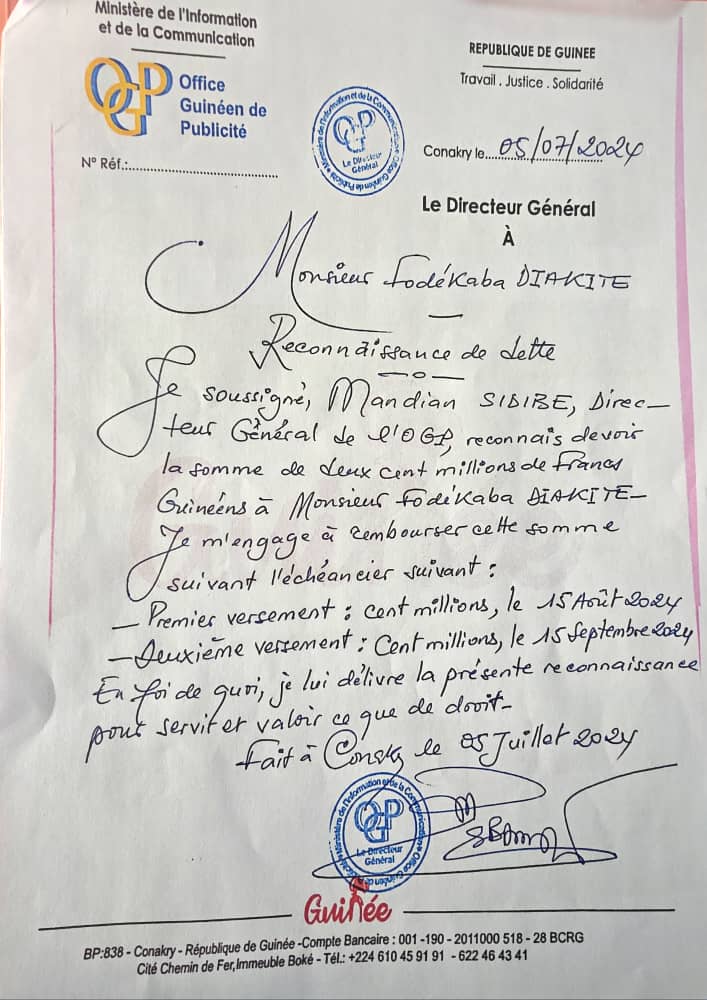 Ministère de l'Information
et de la Communication
OGP
Office
Guinéen de
Publicité
N° Réf.:
REPUBLIQUE DE GUINEE
Travail . Justice . Solidarité
OGP
Le Directeur
Général
Conakry le 05/07/2024
Le Directeur Général
À
Monsieur Fodékaba DIAKITE
Reconnaissance de dette
Je soussigné, Mandian SIDIBE, Direc-
teur Général de l'OGP, reconnais devoir
la somme de deux cent millions de Francs
Guinéens à Monsieur Fodékaba DIAKITE-
Je m'engage à rembourser cette somme
suivant l'échéancier suivant :
- Premier versement : cent millions, le 15 Août 2024
- Deuxième versement : Cent millions, le 15 Septembre 2024
En foi de quoi, je lui délivre la présente reconnaissance
pour servir et valoir ce que de droit-
Fait à Conakry le 05 Juillet 2024
OGP
Le Directeur
Général
Guinée
BP:838 - Conakry - République de Guinée -Compte Bancaire : 001 -190 - 2011000 518 - 28 BCRG
Cité Chemin de Fer,Immeuble Boké - Tél.: +224 610 45 91 91 - 622 46 43 41